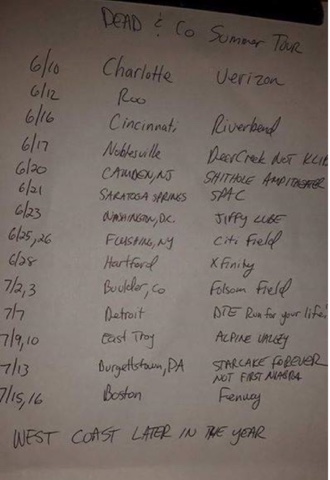 DEAD & Co Summer Tour
6/10 Charlotte Verizon
6/12 Roo
6/16 Cincinnati Riverbend
6/17 Noblesville Deer Creek NOT KLIP
6/20 CAMDEN, NJ SHITHOLE AMPITHEATER
6/21 SARATOGA SPRINGS SPAC
6/23 WASHINGTON, D.C. JIFFY LUBE
6/25,26 FLUSHING, NY Citi Field
6/28 Hartford Xfinity
7/2,3 Boulder, CO Folsom Field
7/7 Detroit DTE Run for your life!
7/9,10 East Troy ALPINE VALLEY
7/13 Burgettstown, PA STARLAKE FOREVER
NOT FIRST NIAGRA
7/15,16 Boston Fenway
WEST COAST LATER IN THE YEAR